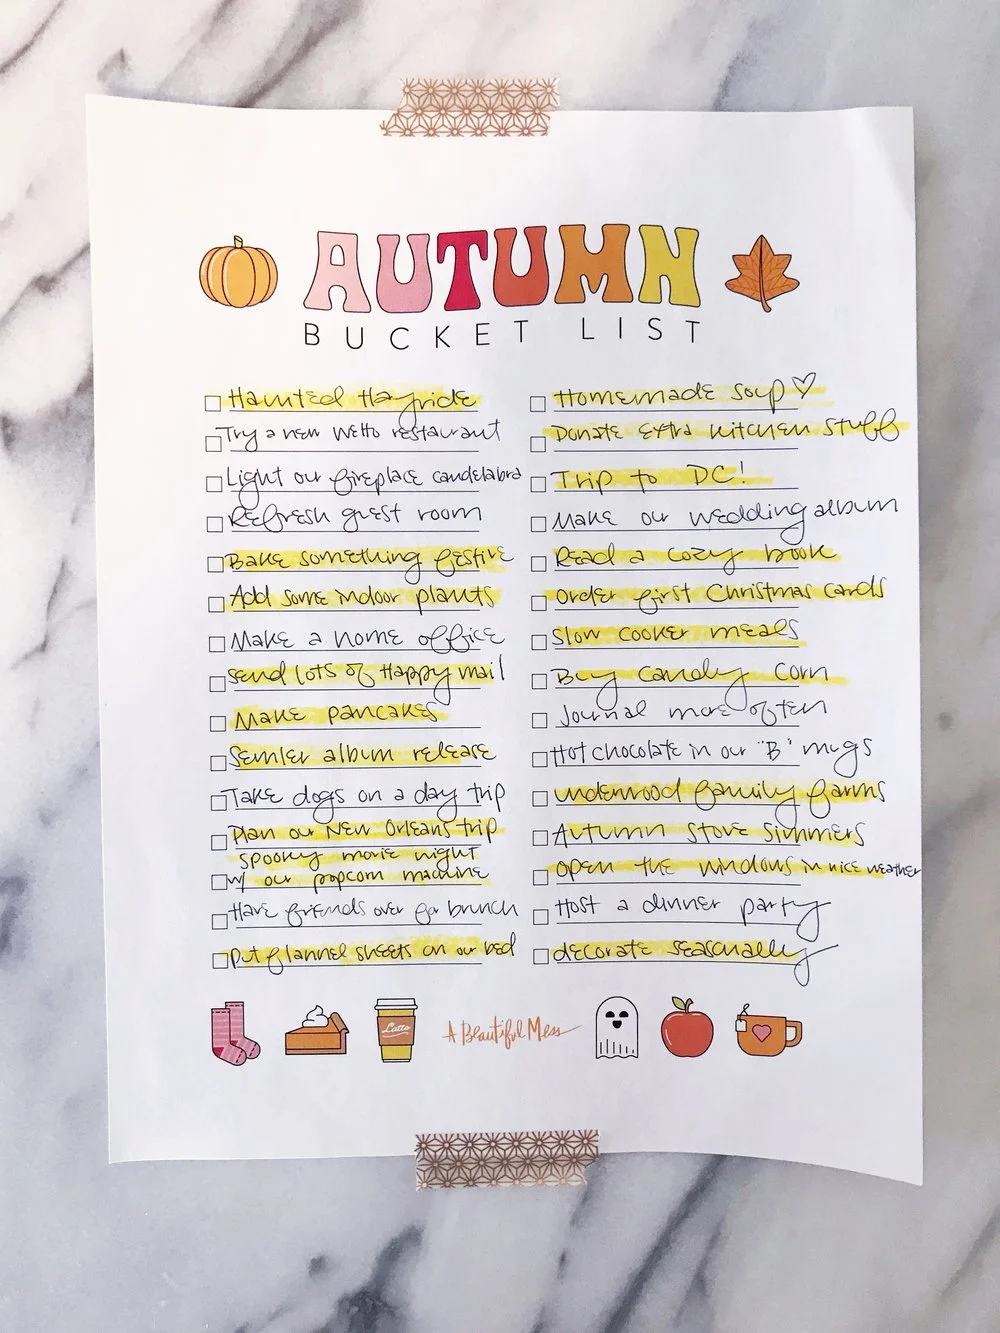 AUTUMN
BUCKET LIST
Haunted Hayride
Try a new Metro restaurant
Light our fireplace candelabra
Refresh guest room
Bake something festive
Add some indoor plants
Make a home office
Send lots of Happy mail
Make pancakes
Semler album release
Take dogs on a day trip
Plan our New Orleans trip
Spooky movie night
w/ our popcorn machine
Have friends over for brunch
Put flannel sheets on our bed
Homemade soup♡
Donate extra kitchen stuff
Trip to DC!
Make our wedding album
Read a cozy book
Order first Christmas cards
Slow cooker meals
Buy candy corn
Journal more often
Hot chocolate in our "B" mugs
Underwood family farms
Autumn stove simmers
Open the windows in nice weather
Host a dinner party
decorate seasonally
Latte
A Beautiful Mess